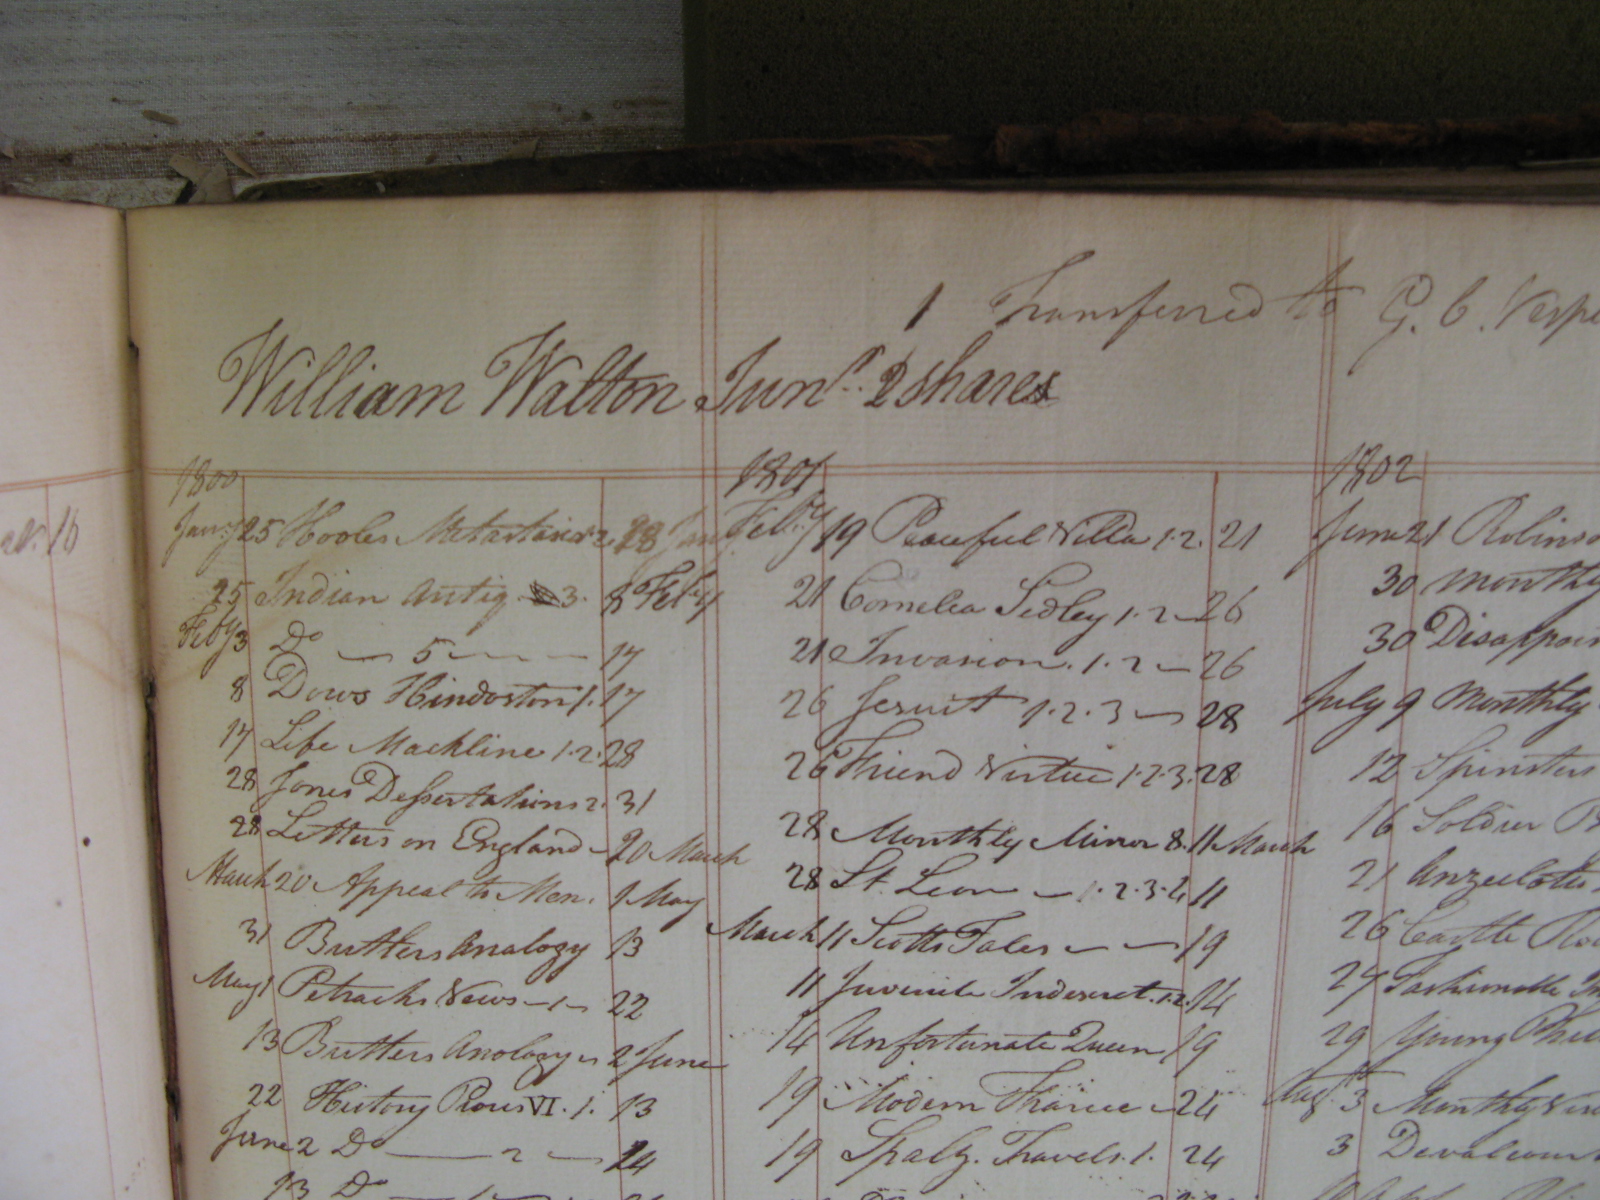 1 Transferred to G. C. Vespe
William Walton Junr. 2 shares
16
1800
Jany 25 Hooles Metastasio 2. 28 Jan
25 Indian Antiq 3. 8 Feby
Feby 3 Do 5 17
8 Dows Hindoston 1. 17
17 Life Mackline 1.2. 28
28 Jones Dessertations 2. 31
28 Letters on England 20 March
March 20 Appeal to Men. 1 May
31 Butlers Analogy 13
May 1 Petrachs Vews 1 22
13 Butlers Anology 2 June
22 History Pious VI. 1. 13
June 2 Do 2 14
13 Do
1801
Feby 19 Peaceful Villa 1.2. 21
21 Cornelia Sedley 1.2 26
21 Invasion. 1.2 26
26 Jesuit 1.2.3 28
26 Friend Virtue 1.2.3. 28
28 Monthly Mirror 8. 11 March
28 St. Leon 1.2.3.4 11
March 11 Scotts Tales 19
11 Juvenile Indescret. 1.2. 14
14 Unfortunate Queen 19
19 Modern Thariee 24
19 Spalz. Travels. 1. 24
1802
June 21 Robinso
30 Monthly
30 Disappoin
July 9 Monthly
12 Spinsters
16 Soldier B
21
26 Castle Ro
27 Fashionable In
29 Young Phil
Augt 3 Monthly
3 Devalcour